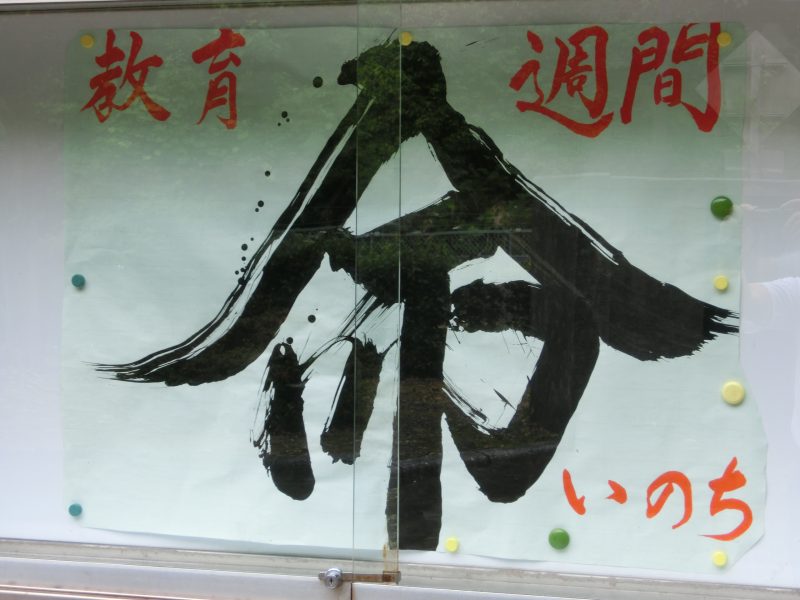 教育 週間
命
いのち